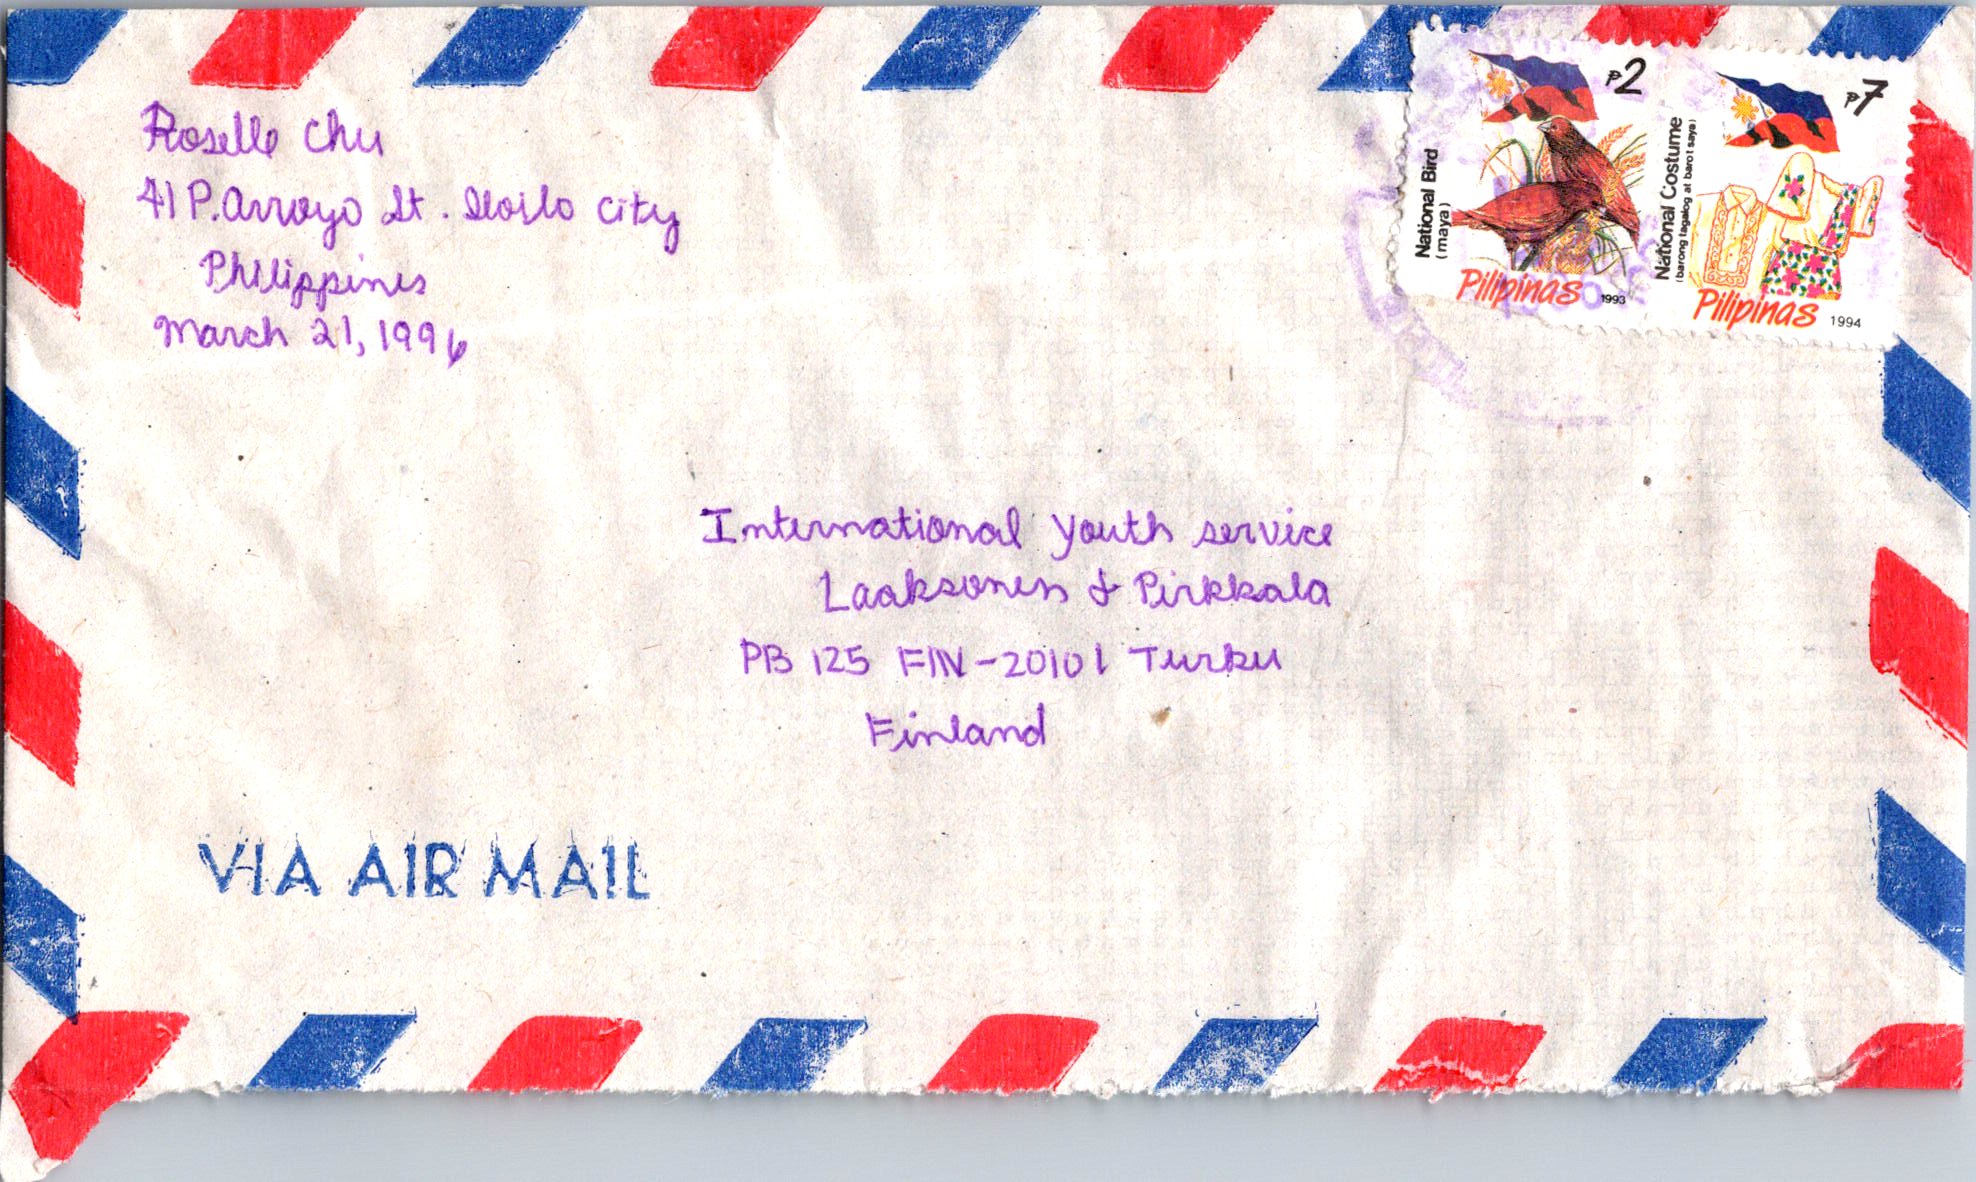 Roselle Chu
41 P. Arroyo St. Iloilo City
Philippines
March 21, 1996
₱2
National Bird
(maya)
Pilipinas 1993
₱7
National Costume
(barong tagalog at baro't saya)
Pilipinas 1994
International Youth service
Laaksonen & Pirkkala
PB 125 FIN-20101 Turku
Finland
VIA AIR MAIL